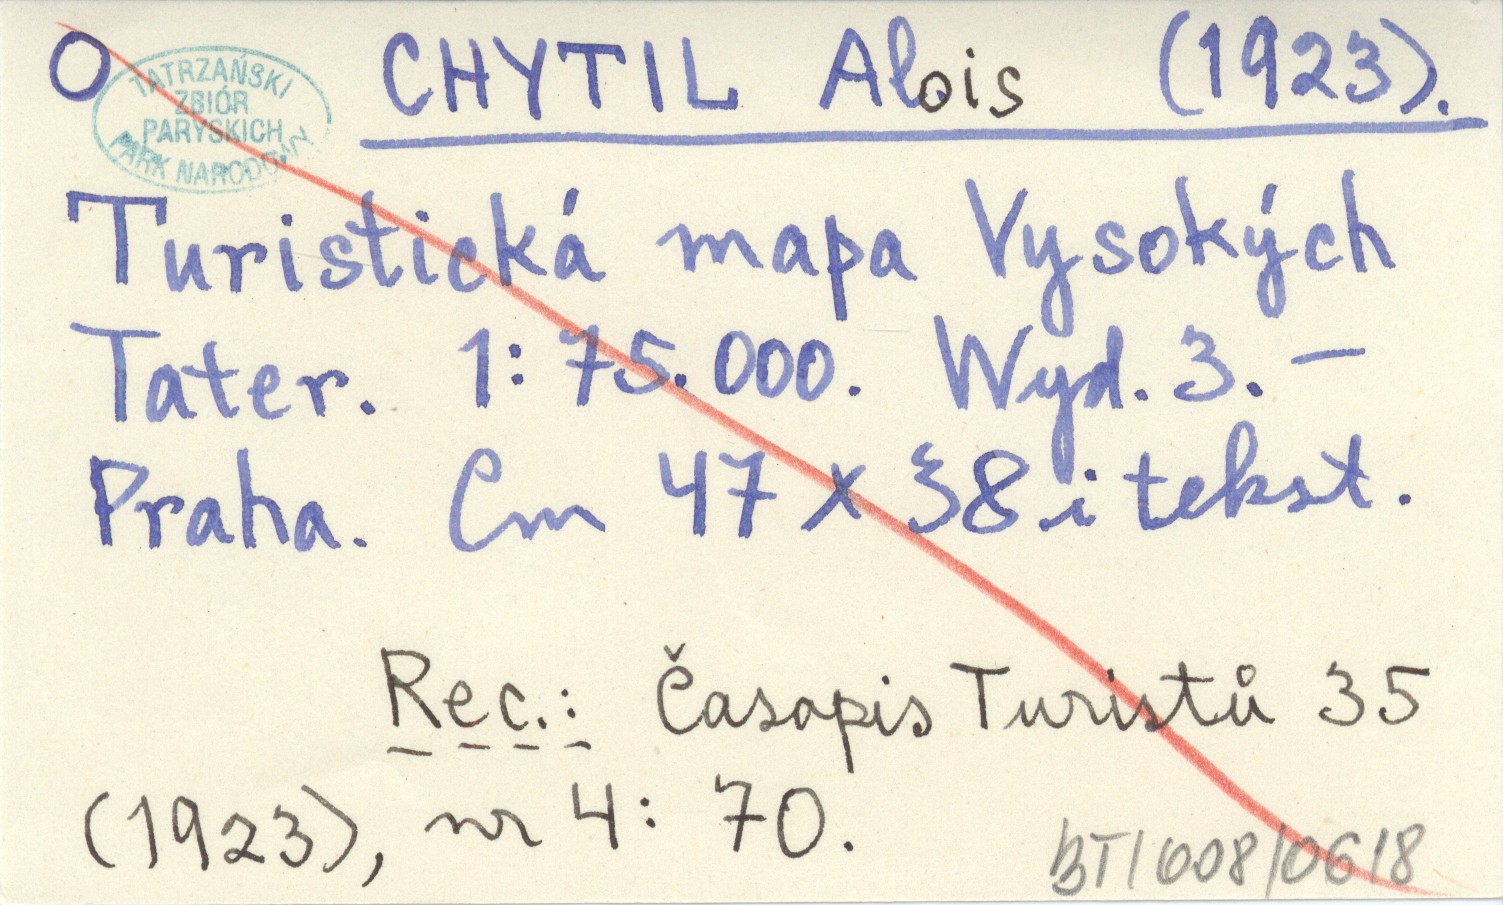 O CHYTIL Alois (1923).
TATRZAŃSKI
ZBIÓR
PARYSKICH
PARK NARODOWY
Turistická mapa Vysokých
Tater. 1:75.000. Wyd. 3. –
Praha. Cm 47 x 38 i tekst.
Rec.: Časopis Turistů 35
(1923), nr 4: 70.
BT/608/0618